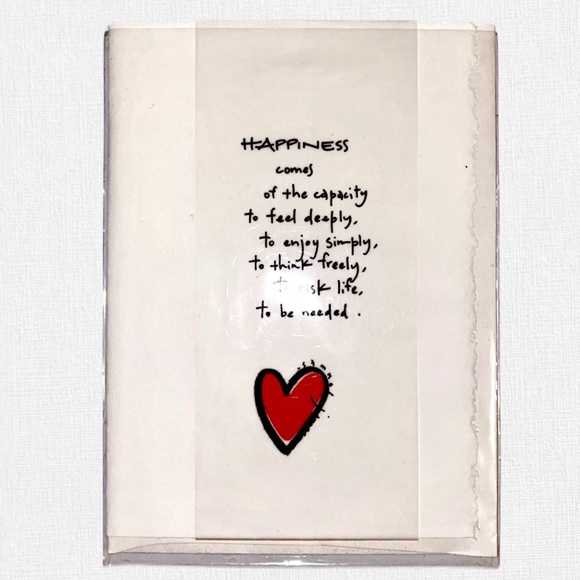 HAPPINESS
comes
of the capacity
to feel deeply,
to enjoy simply,
to think freely,
to risk life,
to be needed.